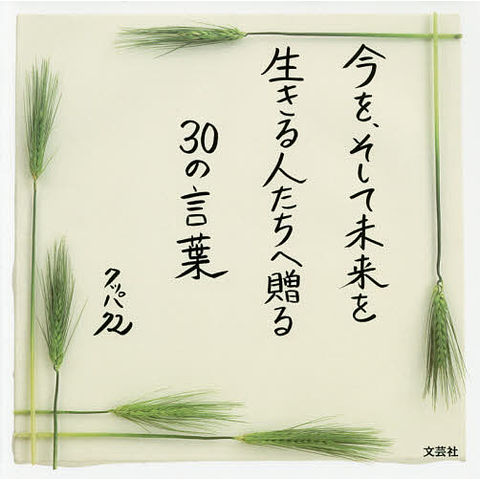 今を、そして未来を
生きる人たちへ贈る
30の言葉
クッパ
文芸社